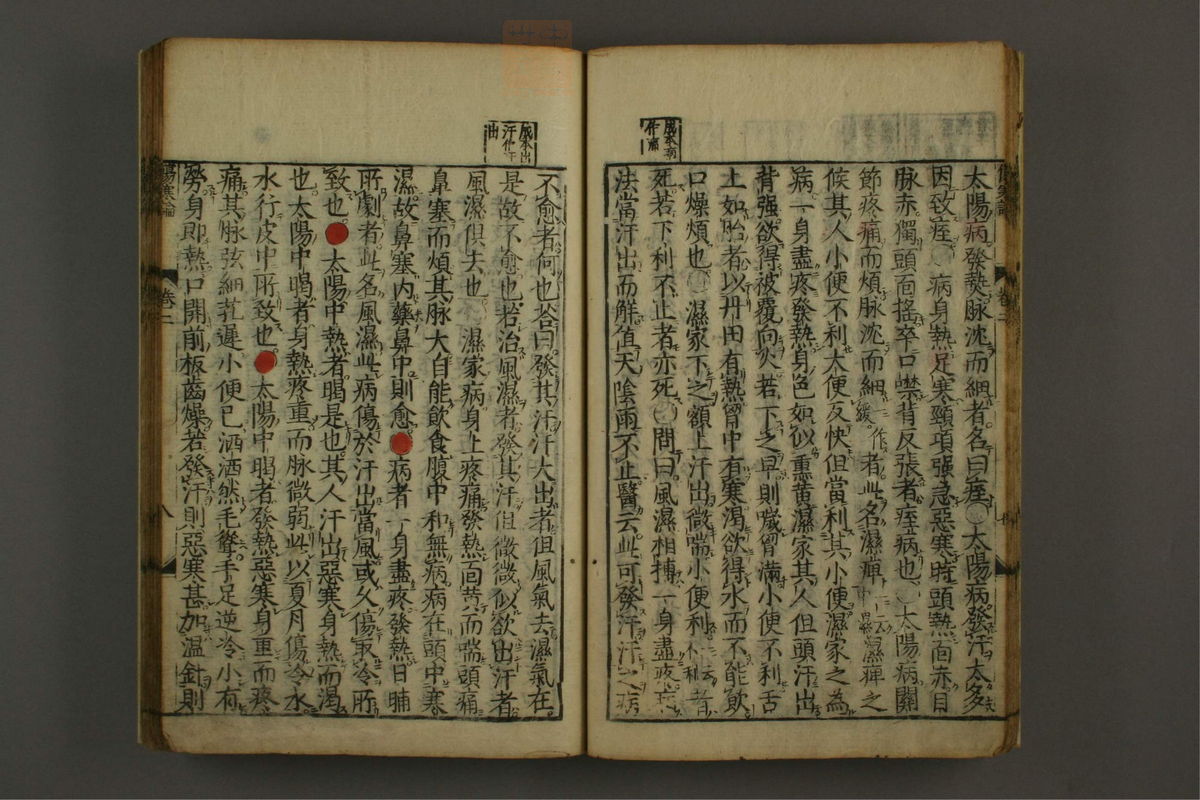 成本頭
作痛
太陽病發熱脉沈而細者名曰痙○太陽病發汗太多
因致痙○病身熱足寒頸項强急惡寒時頭熱面赤目
脉赤獨頭面搖卒口噤背反張者痙病也○太陽病關
節疼痛而煩脉沈而細一作緩者此名濕痺一云中濕濕痺之
候其人小便不利大便反快但當利其小便濕家之為
病一身盡疼發熱身色如似熏黃濕家其人但頭汗出
背强欲得被覆向火若下之早則噦胷滿小便不利舌
上如胎者以丹田有熱胷中有寒渴欲得水而不能飲
口燥煩也○濕家下之額上汗出微喘小便利一云不利者
死若下利不止者亦死○問曰風濕相摶一身盡疼
法當汗出而解值天陰雨不止醫云此可發汗汗之病
成本出
汗作汗
出
不愈者何也荅曰發其汗汗大出者但風氣去濕氣在
是故不愈也若治風濕者發其汗但微微似欲出汗者
風濕俱去也○濕家病身上疼痛發熱面黃而喘頭痛
鼻塞而煩其脉大自能飲食腹中和無病病在頭中寒
濕故鼻塞内藥鼻中則愈●病者一身盡疼發熱日晡
所劇者此名風濕此病傷於汗出當風或久傷取冷所
致也●太陽中熱者暍是也其人汗出惡寒身熱而渴
也太陽中暍者身熱疼重而脉微弱此以夏月傷冷水
水行皮中所致也●太陽中暍者發熱惡寒身重而疼
痛其脉弦細芤遲小便已洒洒然毛聳手足逆冷小有
勞身即熱口開前板齒燥若發汗則惡寒甚加溫針則
傷寒論 卷二 八